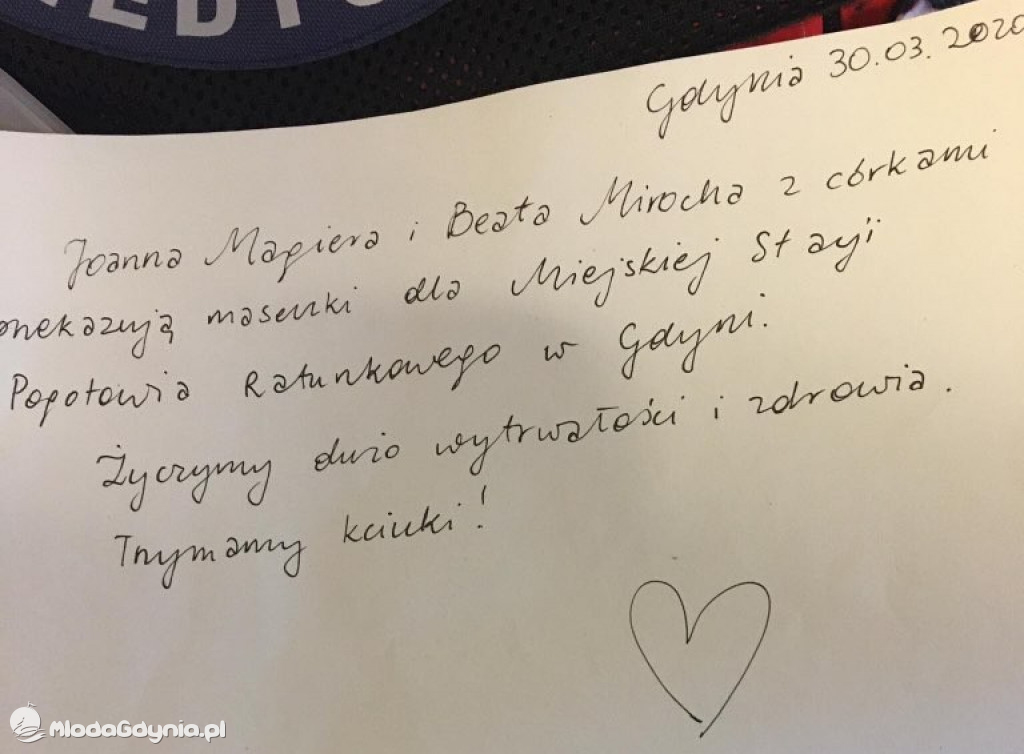 EDYC
Gdynia 30.03.2020
Joanna Magiera i Beata Mirocha z córkami
przekazują maseczki dla Miejskiej Stacji
Pogotowia Ratunkowego w Gdyni.
Życzymy dużo wytrwałości i zdrowia.
Trzymamy kciuki!
MlodaGdynia.pl